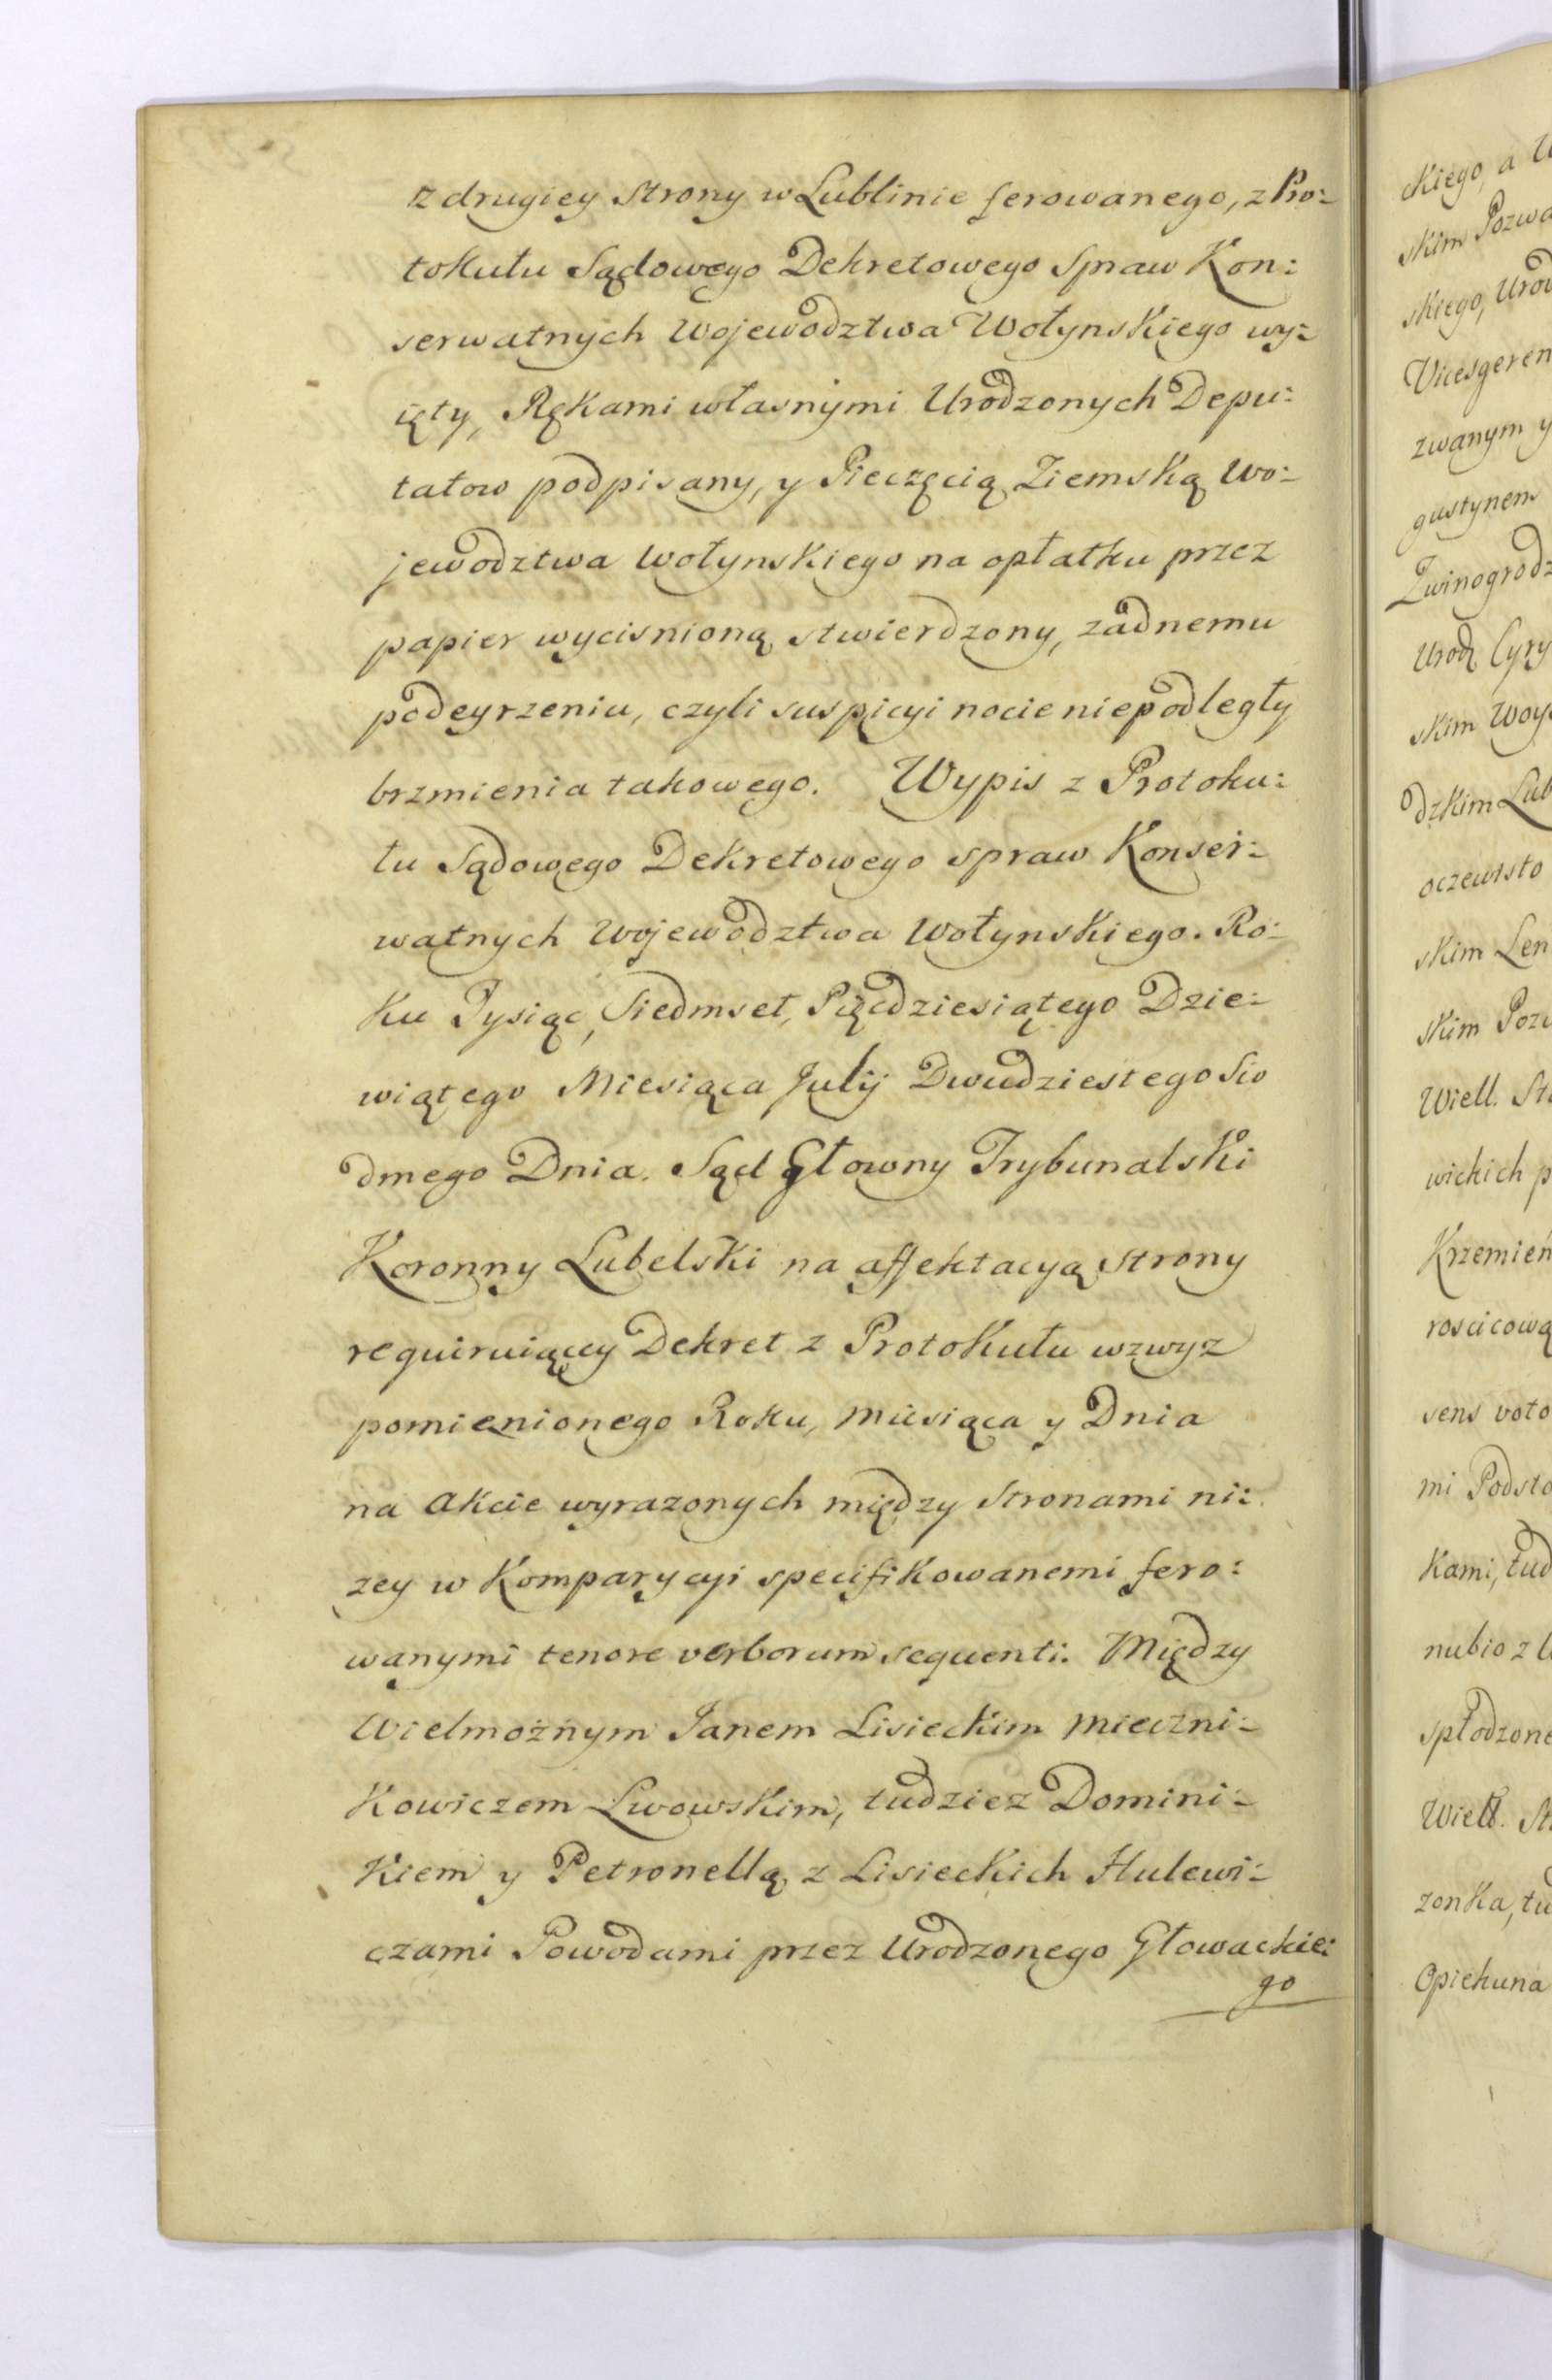 z drugiey Strony w Lublinie ferowanego, z Pro:
tokułu Sądowego Dekretowego Spraw Kon:
serwatnych Wojewodztwa Wołynskiego wy:
ięty, Rękami własnymi Urodzonych Depu:
tatow podpisany, y Pieczęcią Ziemską Wo:
jewodztwa Wołynskiego na opłatku przez
papier wycisnioną stwierdzony, zadnemu
podeyrzeniu, czyli suspicyi nocie niepodległy
brzmienia takowego. Wypis z Protoku:
łu Sądowego Dekretowego spraw Konser:
watnych Wojewodztwa Wołynskiego. Ro:
ku Tysiąc, Siedmset, Pięcdziesiątego Dzie:
wiątego Miesiąca Julij Dwudziestego Sio
dmego Dnia. Sąd Głowny Trybunalski
Koronny Lubelski na affektacyą Strony
requiruiącey Dekret z Protokułu wzwyz
pomienionego Roku, Miesiąca y Dnia
na Akcie wyrazonych między Stronami ni:
zey w Komparycyi specifikowanemi fero:
wanymi tenore verborum sequenti. Między
Wielmożnym Janem Lisieckim Mieczni:
kowiczem Lwowskim, tudziez Domini:
kiem y Petronellą z Lisieckich Hulewi:
czami Powodami przez Urodzonego Głowackie:
go
kiego, a
skim Pozwa
skiego, Urod
Vicesgeren
zwanym y
gustynem
Zwinogrodz
Urodz Cyry
skim Woys
dzkim Lub
oczewisto
skim Len
skim Pozw
Wiell. Sta
wickich p
Krzemień
roscicową
sens voto
mi Podsto
kami, tud
nubio z
spłodzone
Wiell. St.
zonka, tu
Opiekuna